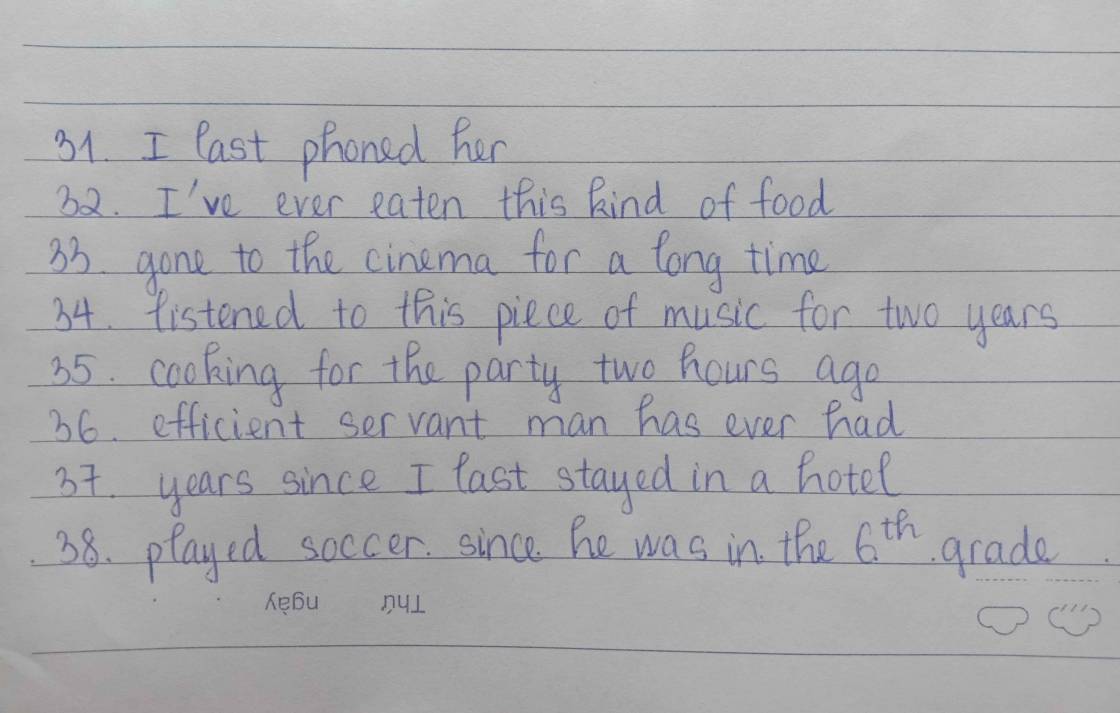 31. I last phoned her
32. I've ever eaten this kind of food
33. gone to the cinema for a long time
34. listened to this piece of music for two years
35. cooking for the party two hours ago
36. efficient servant man has ever had
37. years since I last stayed in a hotel
38. played soccer. since he was in the 6th grade
Thứ ngày